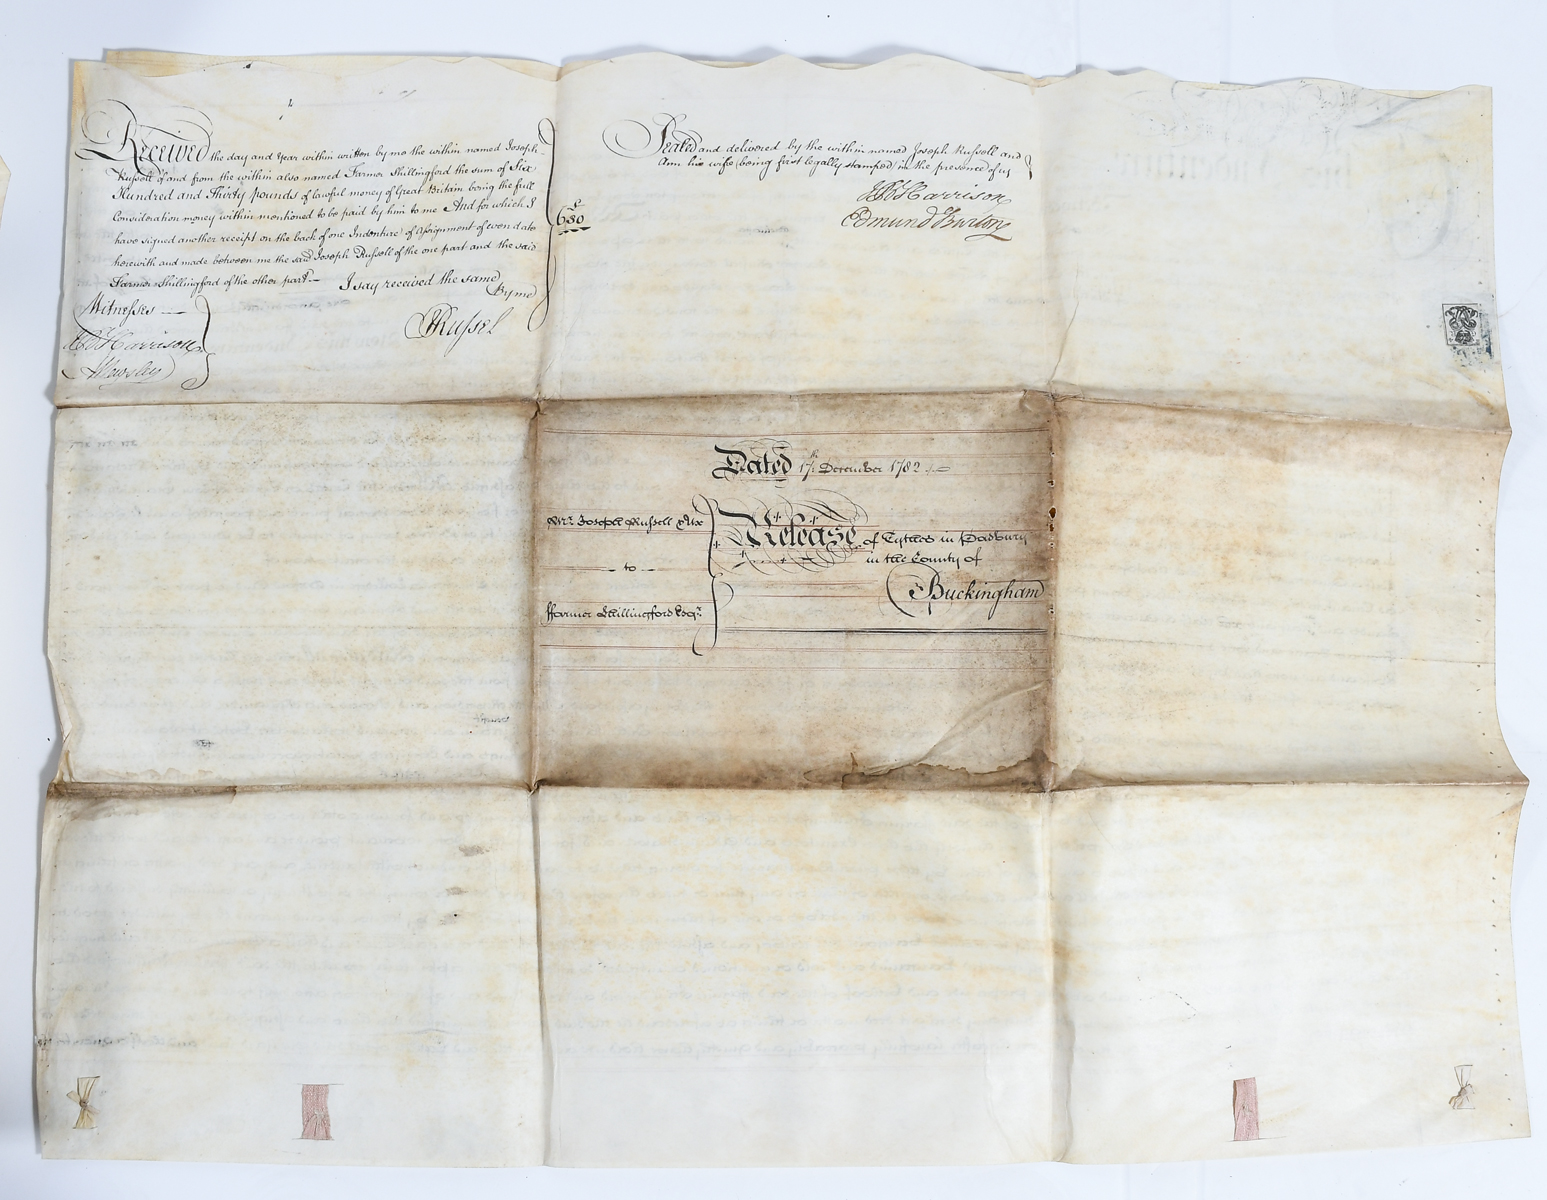 Received the day and Year within written by me the within named Joseph
Russell of and from the within also named Farmer Shillingford the sum of Six
Hundred and Thirty pounds of lawful money of Great Britain being the full
Consideration money within mentioned to be paid by him to me And for which I
have signed another receipt on the back of one Indenture of Assignment of even date
herewith and made between me the said Joseph Russell of the one part and the said
Farmer Shillingford of the other part — I say received the same
By me
£
630
JRussel
Witnesses —
Harrison
Sealed and delivered by the within named Joseph Russell and
Ann his wife (being first legally stamped) in the presence of us
Harrison
Edmund Burton
Dated 17th December 1782
Mr. Joseph Russell & Ux
— to —
Farmer Shillingford Esqr.
Release of Tythes in Padbury
in the County of
Buckingham